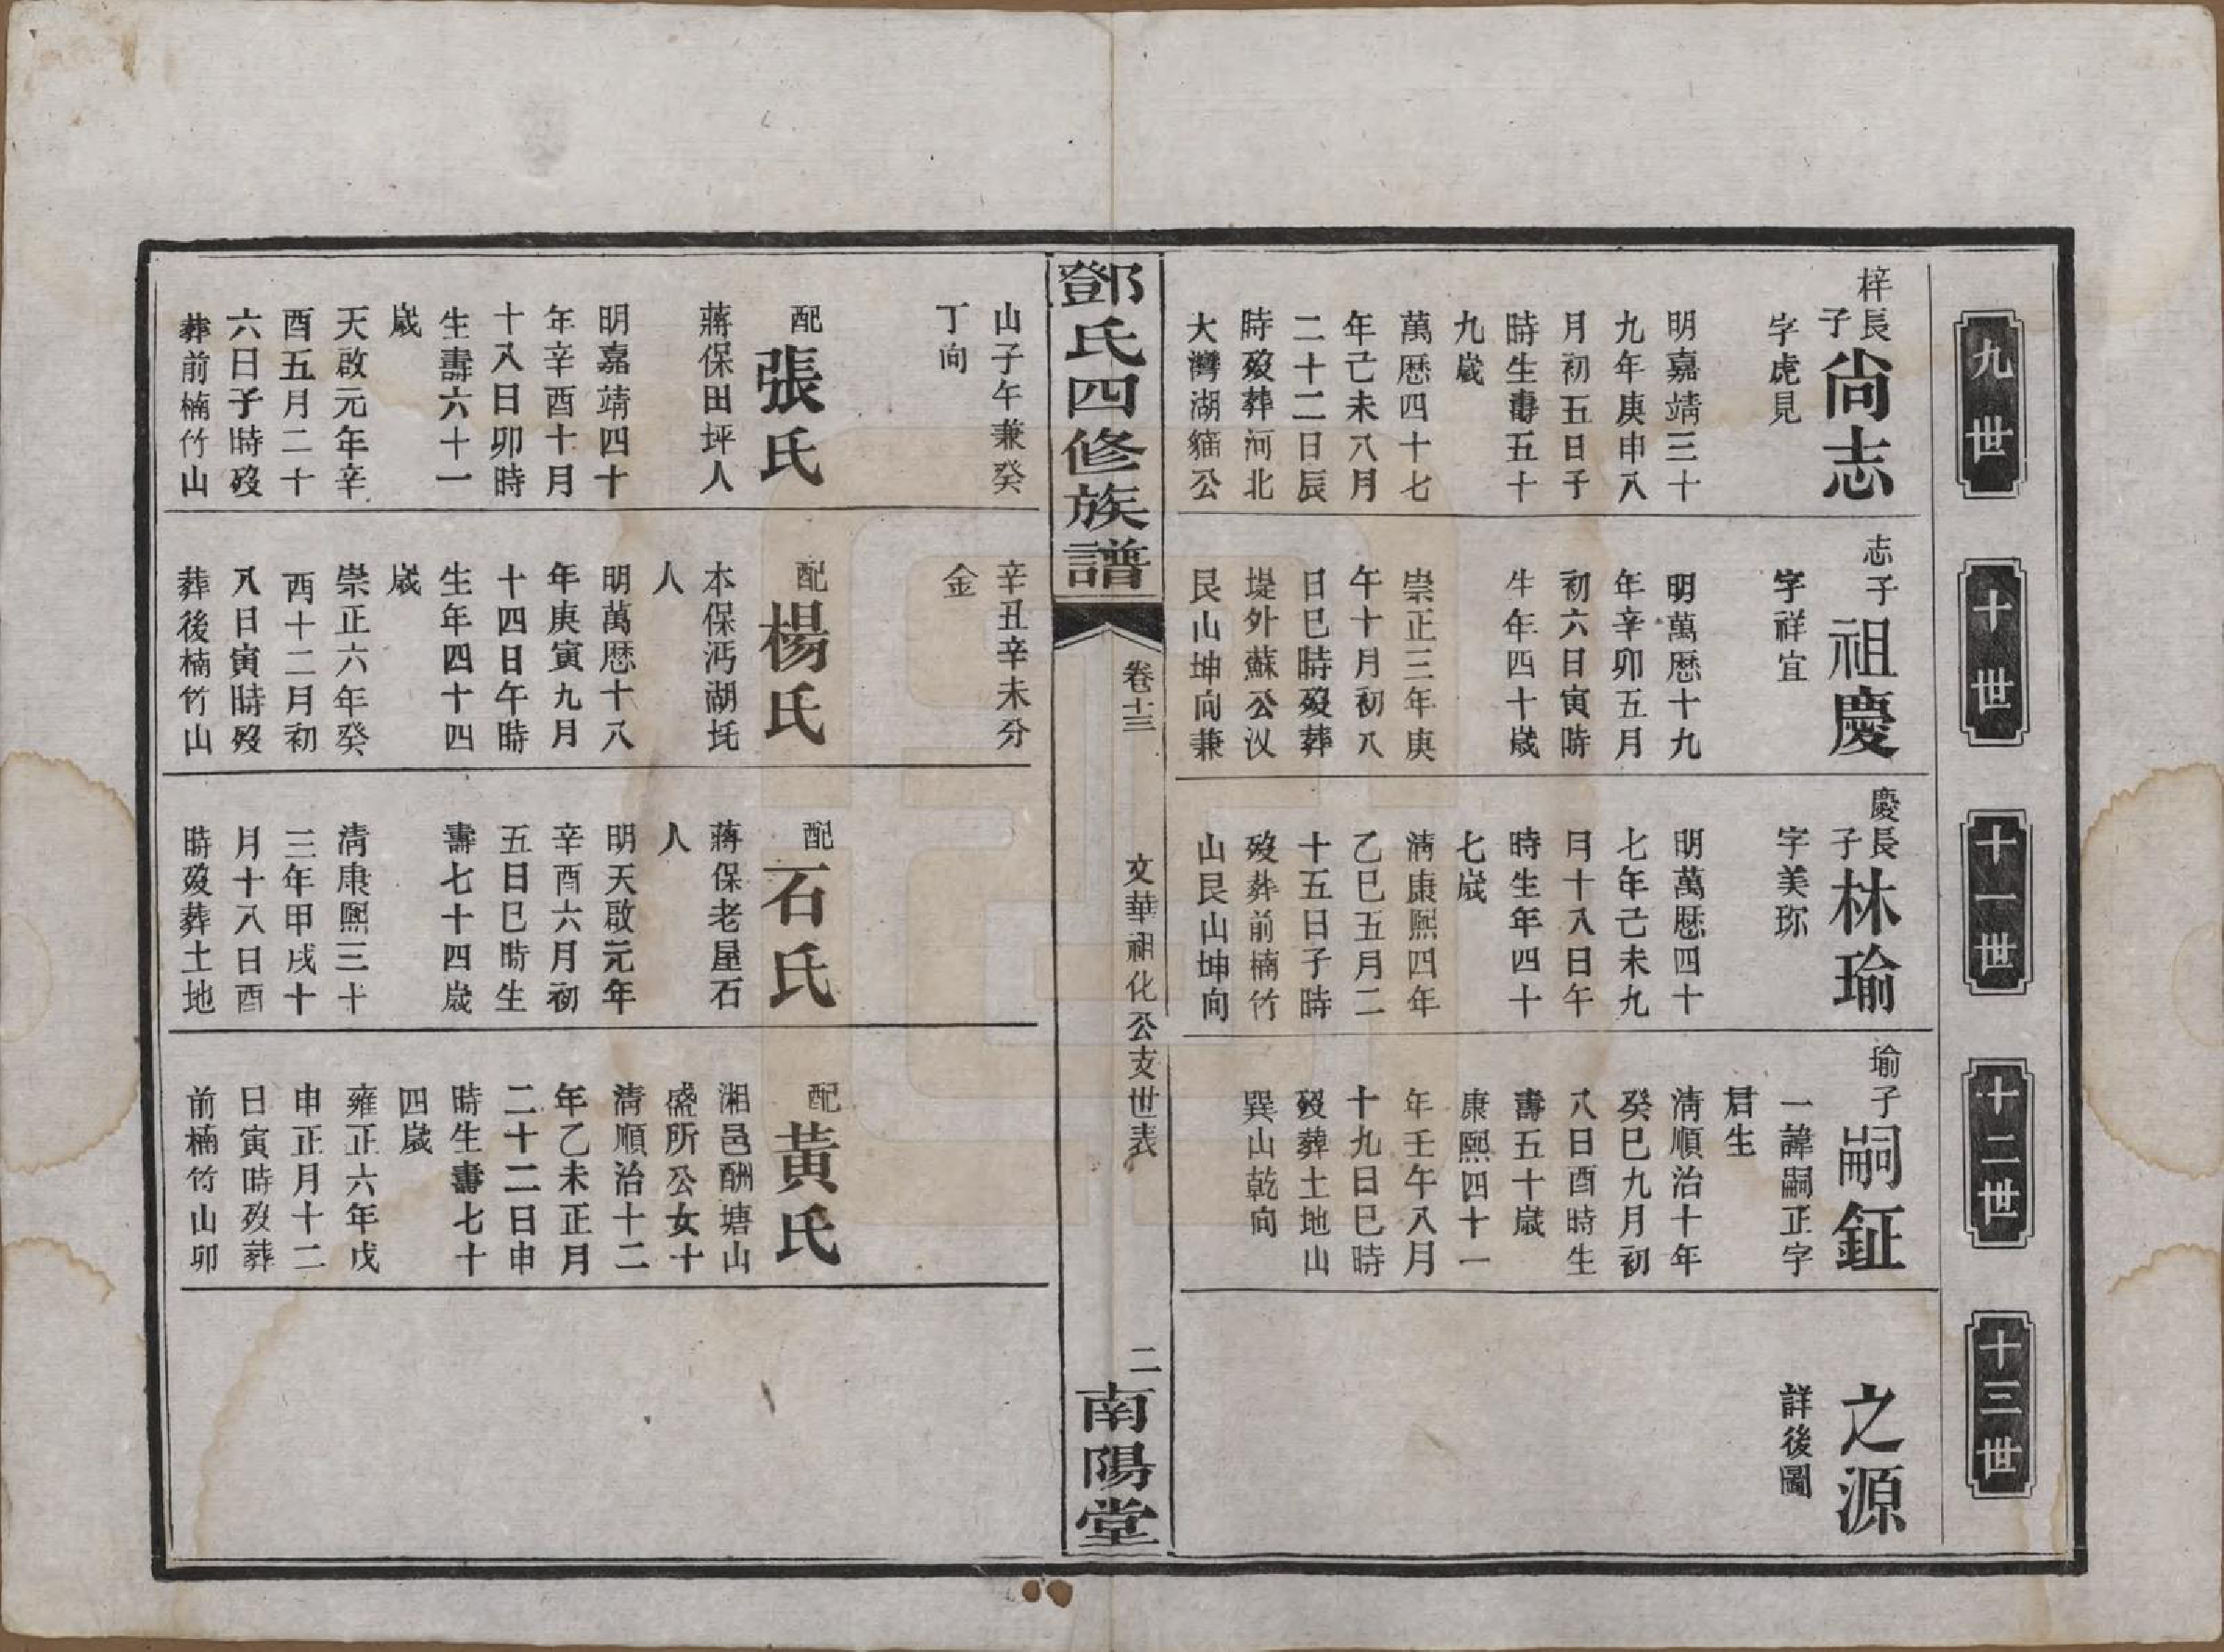 九世
十世
十一世
十二世
十三世
梓長
子
尚志
字虎見
明嘉靖三十
九年庚申八
月初五日子
時生壽五十
九歲
萬歷四十七
年己未八月
二十二日辰
時歿葬河北
大灣湖貓公
山子午兼癸
丁向
配
張氏
蔣保田坪人
明嘉靖四十
年辛酉十月
十八日卯時
生壽六十一
歲
天啟元年辛
酉五月二十
六日子時歿
葬前楠竹山
志子
祖慶
字祥宜
明萬歷十九
年辛卯五月
初六日寅時
生年四十歲
崇正三年庚
午十月初八
日巳時歿葬
堤外蘇公汊
艮山坤向兼
辛丑辛未分
金
配
楊氏
本保沔湖圫
人
明萬歷十八
年庚寅九月
十四日午時
生年四十四
歲
崇正六年癸
酉十二月初
八日寅時歿
葬後楠竹山
慶長
子
林瑜
字美珎
明萬歷四十
七年己未九
月十八日午
時生年四十
七歲
清康熙四年
乙巳五月二
十五日子時
歿葬前楠竹
山艮山坤向
配
石氏
蔣保老屋石
人
明天啟元年
辛酉六月初
五日巳時生
壽七十四歲
清康熙三十
三年甲戌十
月十八日酉
時歿葬土地
瑜子
嗣鉦
一諱嗣正字
君生
清順治十年
癸巳九月初
八日酉時生
壽五十歲
康熙四十一
年壬午八月
十九日巳時
歿葬土地山
巽山乾向
配
黃氏
湘邑酬塘山
盛所公女十
清順治十二
年乙未正月
二十二日申
時生壽七十
四歲
雍正六年戊
申正月十二
日寅時歿葬
前楠竹山卯
之源
詳後圖
鄧氏四修族譜
卷十三
文華祖化公支世表
二
南陽堂